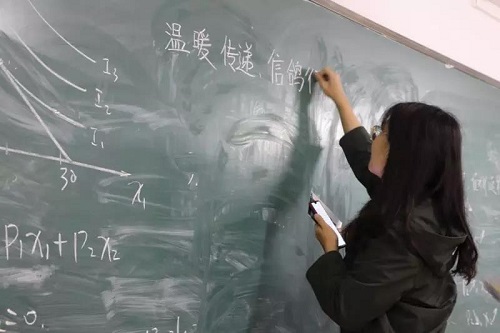 温暖传递、信鸽
I₃
I₂
I₁
30
x₁
P₁x₁+P₂x₂
=0.